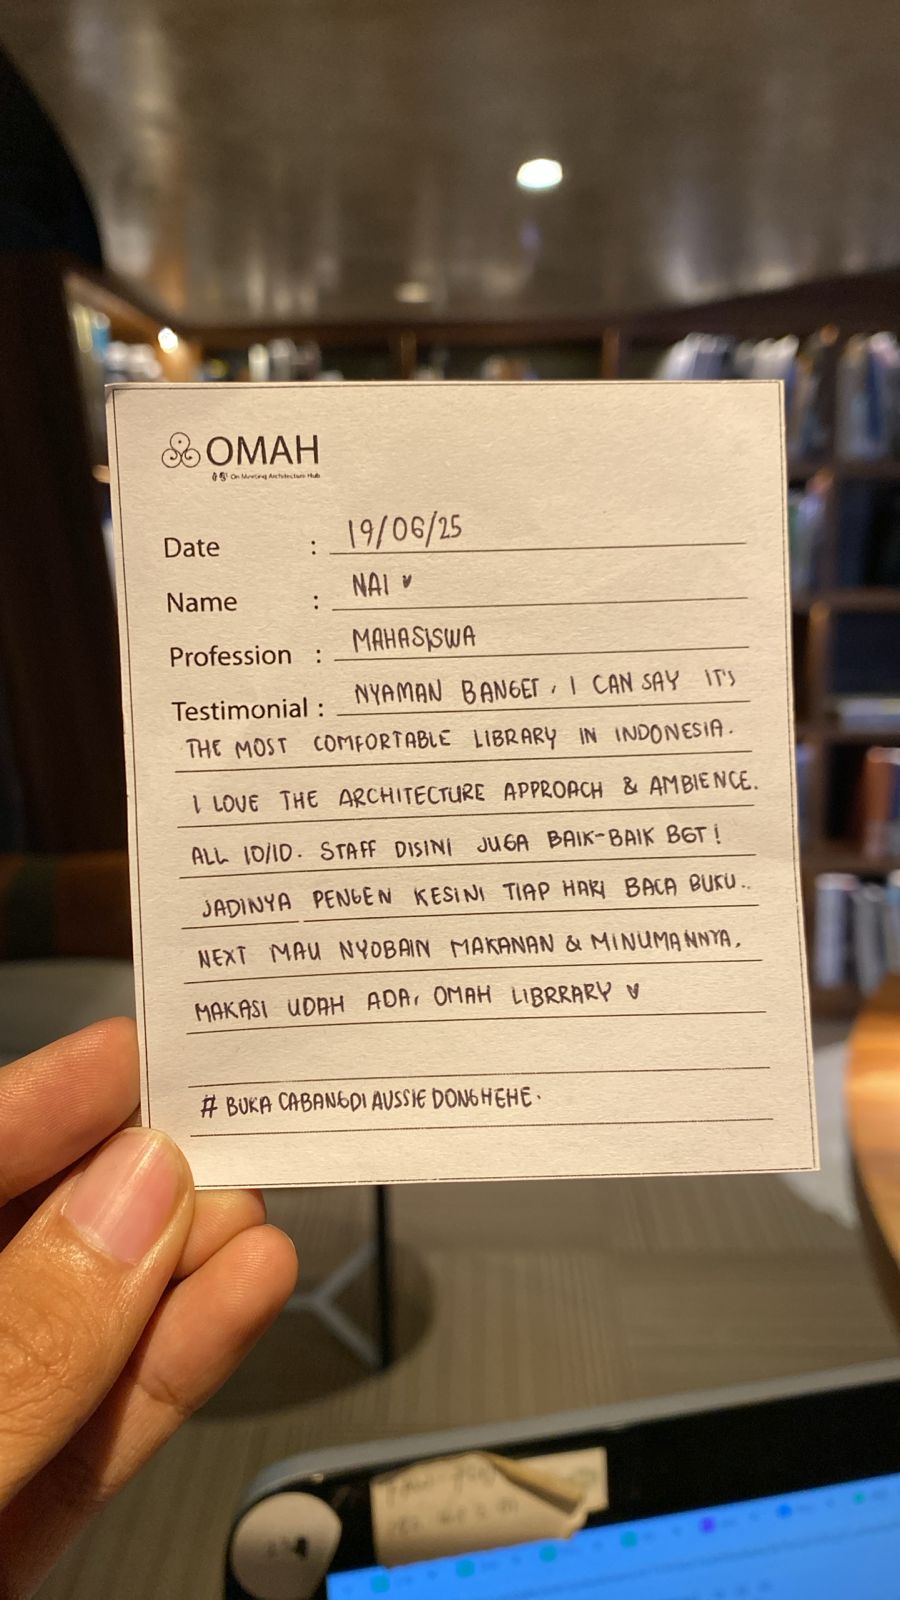 OMAH
On Meeting Architecture Hub
Date : 19/06/25
Name : NAI ♥
Profession : MAHASISWA
Testimonial : NYAMAN BANGET, I CAN SAY IT'S
THE MOST COMFORTABLE LIBRARY IN INDONESIA.
I LOVE THE ARCHITECTURE APPROACH & AMBIENCE.
ALL 10/10. STAFF DISINI JUGA BAIK-BAIK BGT!
JADINYA PENGEN KESINI TIAP HARI BACA BUKU..
NEXT MAU NYOBAIN MAKANAN & MINUMANNYA.
MAKASI UDAH ADA, OMAH LIBRRARY ♥
# BUKA CABANGDI AUSSIE DONG HEHE.